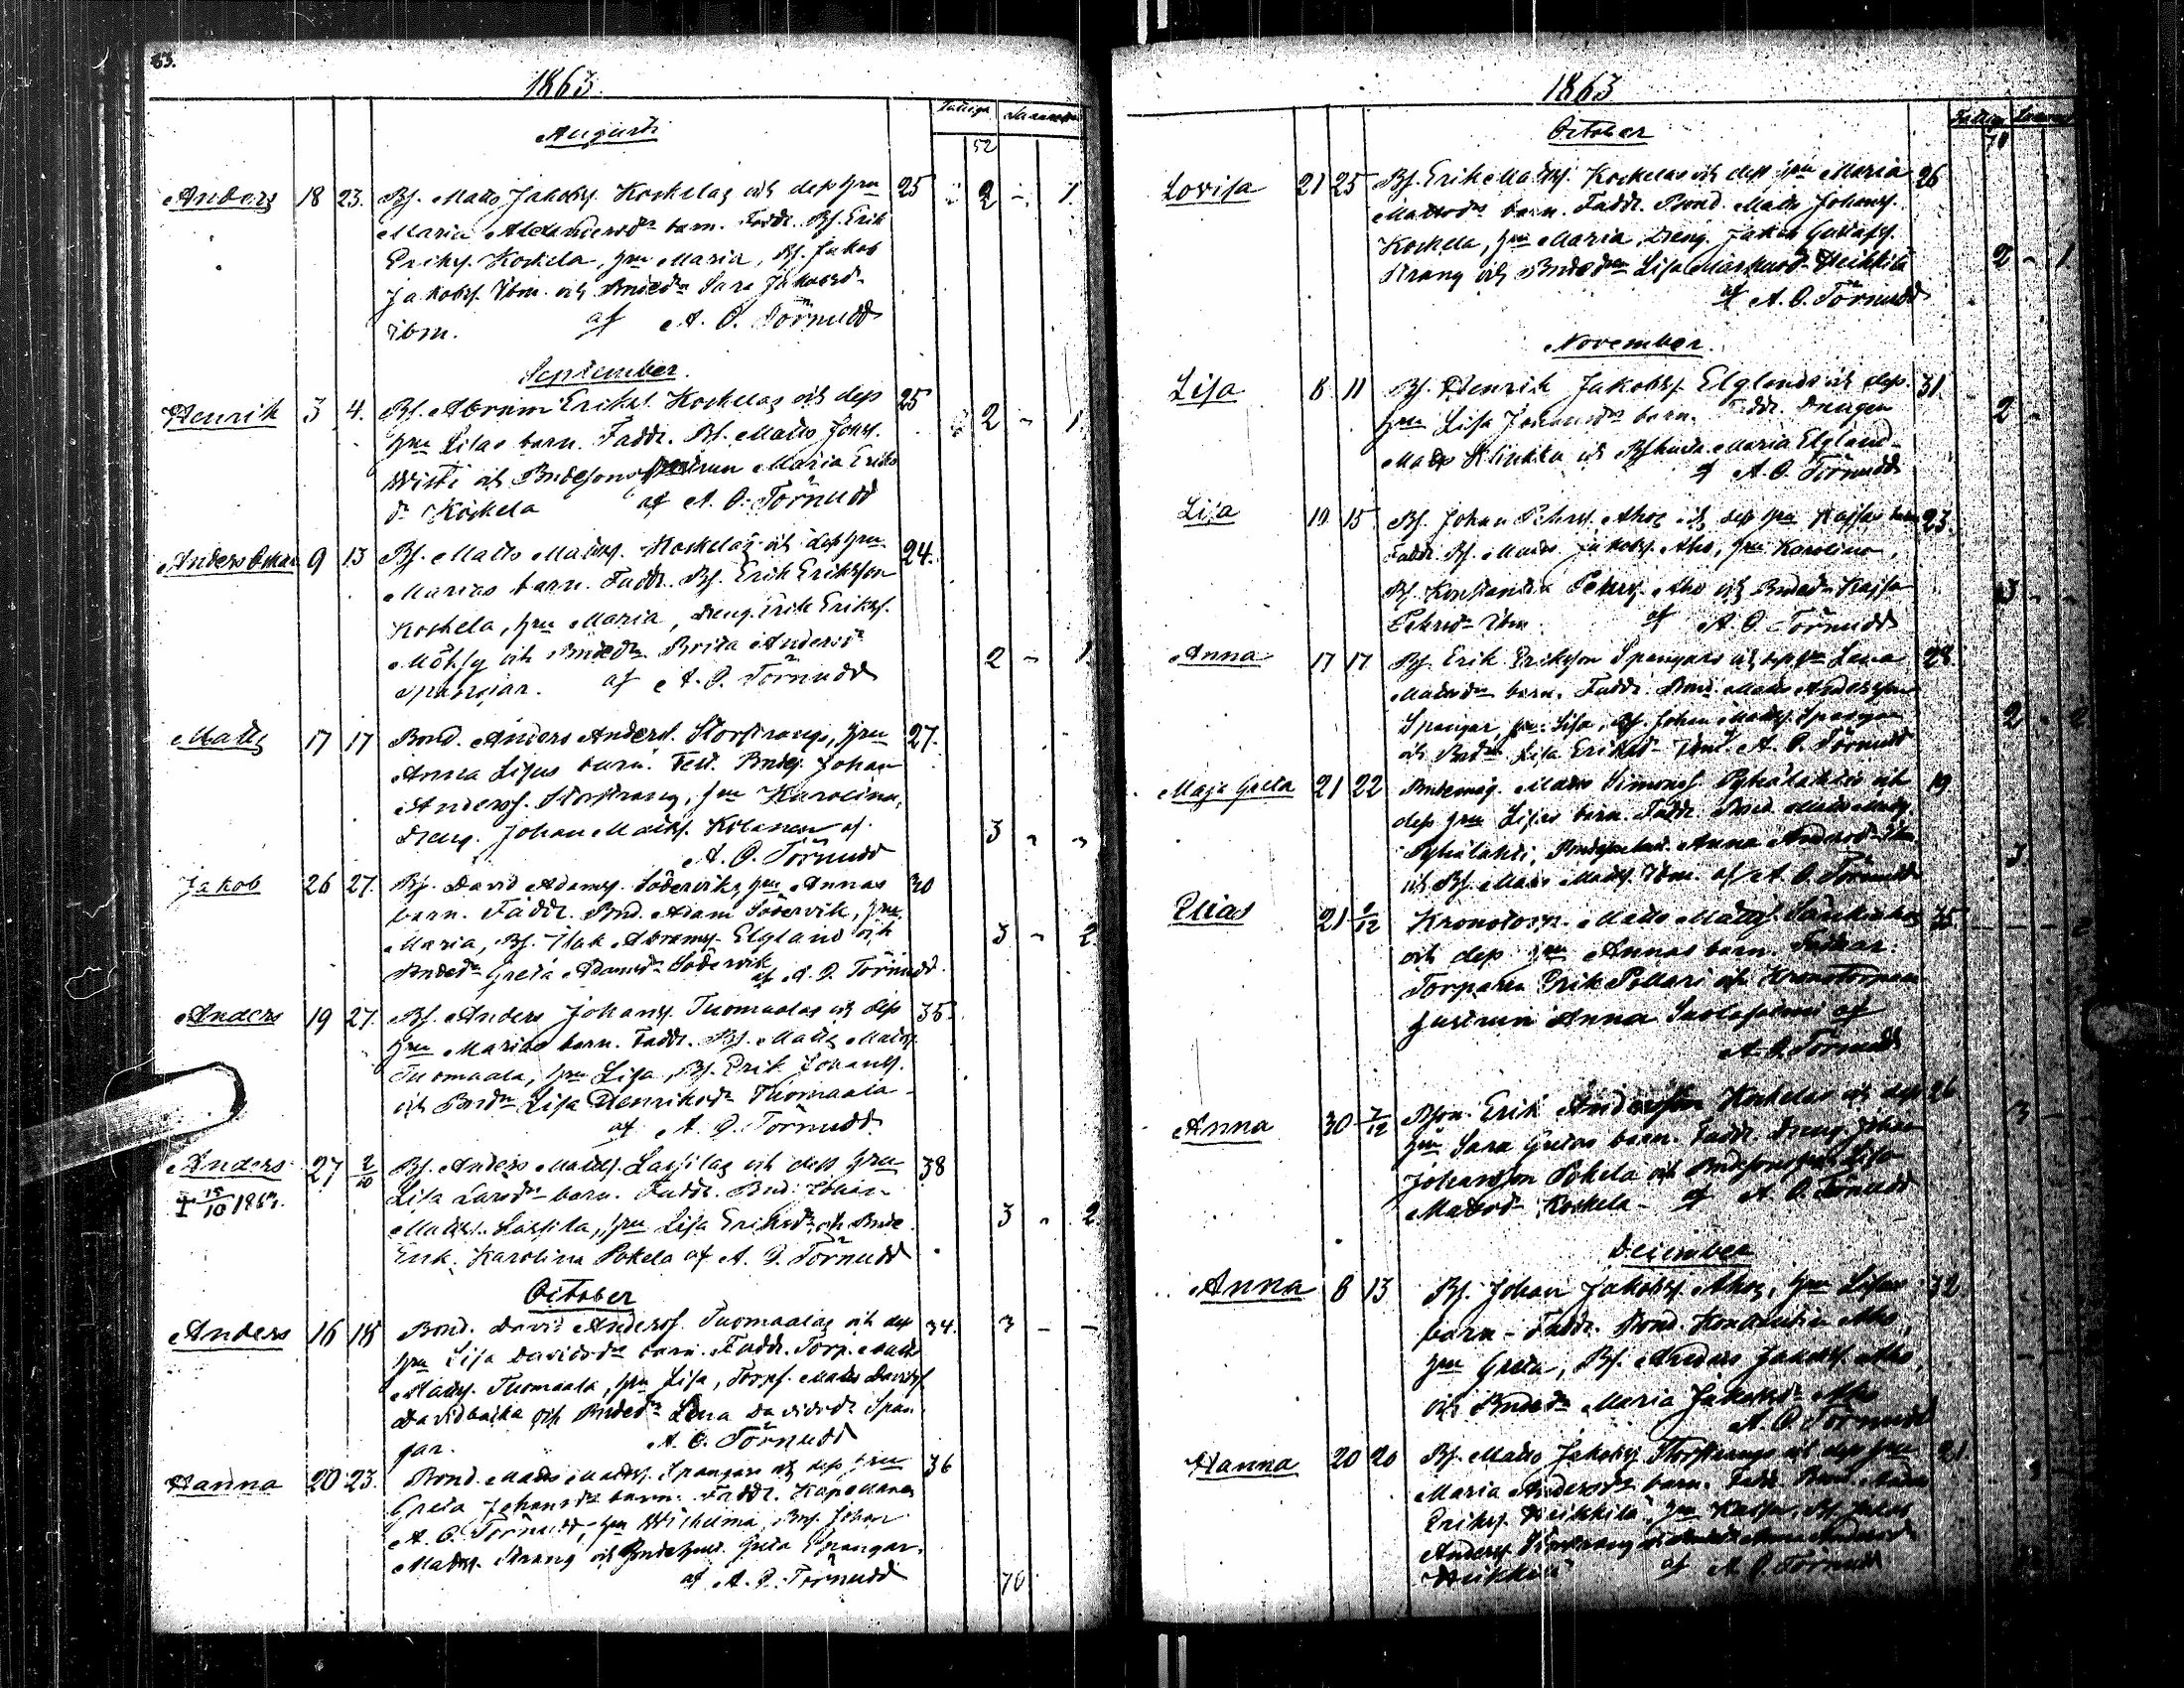 83.
1863.
Fattiga
52
Augusti
Anders 18 23. Bf. Matts Jakobsf. Koskelas och dess hru 25 2 - 1.
Maria Alexandersdr barn. Faddr. Bf. Erik
Eriksf. Koskela, hru Maria, Bf. Jakob
Jakobsf. Ibm. och Bndedr Sara Jakobsd.
ibm. af A. O. Törnudd
September.
Henrik 3 4. Bf. Abram Eriksf. Koskelas och dess 25 2 - 1.
hru Lisas barn. Faddr. Bf. Matts Johsf.
Wisti och Bndesons hustrun Maria Eriks
dr Koskela af A. O. Törnudd
Anders Oskar 9 13 Bf. Matts Mattsf. Koskelas och dess hru 24.
Marias barn. Faddr. Bf. Erik Eriksson
Koskela, hru Maria, Dreng. Erik Eriksf.
och Bndedr Brita Andersdr 2 - 1
Spangar. af A. O. Törnudd
Matts 17 17 Bond. Anders Andersf. Storstrangs, hru 27.
Anna Lisas barn. Fadd. Bndes. Johan
Andersf. Storstrang, hru Karolina,
Dreng. Johan Mattsf. Kolanen af. 3 - -
A. O. Törnudd
Jakob 26 27. Bf. David Adamsf. Söderviks hru Annas 30
barn. Faddr. Bnd. Adam Södervik, hru
Maria, Bf. Isak Abramsf. Elgland och 3 - 2.
Bndedr Greta Adamsdr Södervik
af A. O. Törnudd.
Anders 19 27. Bf. Anders Johansf. Tuomaalas och dess 35.
hru Marias barn. Faddr. Bf. Matts Mattsf.
Tuomaala, hru Lisa, Bf. Erik Johansf.
och Bndedr Lisa Henriksdr Tuomaala
af A. O. Törnudd.
Anders 27 2/10 Bf. Anders Mattsf. Lassilas och dess hru 38
† 15/10 1863. Lisa Larsdr barn. Faddr. Bnd. Johan
Mattsf. Lassila, hru Lisa Eriksdr och Bnde 3 - 2
Enk. Karolina Pokela af A. O. Törnudd
October
Anders 16 18 Bond. David Andersf. Tuomaalas och dess 34. 3 - -
hru Lisa Davidsdr barn. Faddr. Torp. Matts
Mattsf. Tuomaala, hru Lisa, Torpf. Matts Davidsf
Davidbacka och Bndedr Lena Davidsdr Span
gar. A. O. Törnudd
Hanna 20 23. Bond. Matts Mattsf. Spangars och dess hru 36
Greta Johansdr barn. Faddr. Kapellanen
A. O. Törnudd, hru Wilhelma, Bnf. Johan
Mattsf. Strang och Bndehust. Greta Spangar.
af A. O. Törnudd
70
1863
October
Fattiga
70
Lovisa 21 25 Bf. Erik Mattsf. Koskelas och dess hru Maria 26
Mattsdr barn. Faddr. Bond. Matts Johansf.
Koskela, hru Maria, Dreng. Jakob Gustafsf.
Strang och Bndedr Lisa Heikkilä 2 - 1
af A. O. Törnudd
November.
Lisa 8 11 Bf. Henrik Jakobsf. Elglands och dess 31. 2 -
hru Lisa Johansdr barn. Faddr. Drengen
Matts Klinkka och Maria Elgland
af A. O. Törnudd
Lisa 10 15 Bf. Johan Pehrsf. Ahos och dess hru Kajsas barn 23.
Faddr. Bf. Matts Jakobsf. Aho, hru Karolina,
Bf. Konstantin Pehrsf. Aho och Bndedr Kajsa 3 - -
Pehrsdr Ibm. af A. O. Törnudd
Anna 17 17 Bf. Erik Eriksson Spangars och dess hru Lena 28
Mattsdr barn. Faddr. Bond. Matts Andersson
Spangar, hru Lisa, Bf. Johan Mattsf. Spangar 2 - 2
och Bndedr Lisa Eriksdr Ibm. A. O. Törnudd
Maja Greta 21 22 Bndemåg. Matts Simonsf. Pyhälahtis och 19
dess hru Lisas barn. Faddr. Bond. Matts Mattsf.
Pyhälahti, Anna Andersdr Ibm 3
och Bf. Matts Mattsf. Ibm. af A. O. Törnudd
Elias 21 6/12 Kronotorp. Matts Mattsf. 35
och dess hru Annas barn. Faddrar.
Torparen Erik Pollari och Kronotorpare
hustrun Anna af
A. O. Törnudd
Anna 30 7/12 Bson. Erik Andersson Koskelas och dess 26
hru Sara Gretas barn. Faddr. Dreng. Johan 3 -
Johansson Pokela och Bndesonshru Lisa
Mattsdr Koskela - af A. O. Törnudd
December
Anna 8 13 Bf. Johan Jakobsf. Ahos, hru Lisas 32
barn - Faddr. Bond. Konstantin Aho,
hru Greta, Bf. Anders Jakobsf. Aho,
och Bndedr Maria Jakobsdr Aho
A. O. Törnudd
Hanna 20 20 Bf. Matts Jakobsf. Storstrangs och dess hru 21
Maria Andersdr barn. Faddr. Bond. Matts
Eriksf. Heikkilä, hru Kajsa, Bf. Jakob
Andersf. Storstrang
Heikkilä af A. O. Törnudd